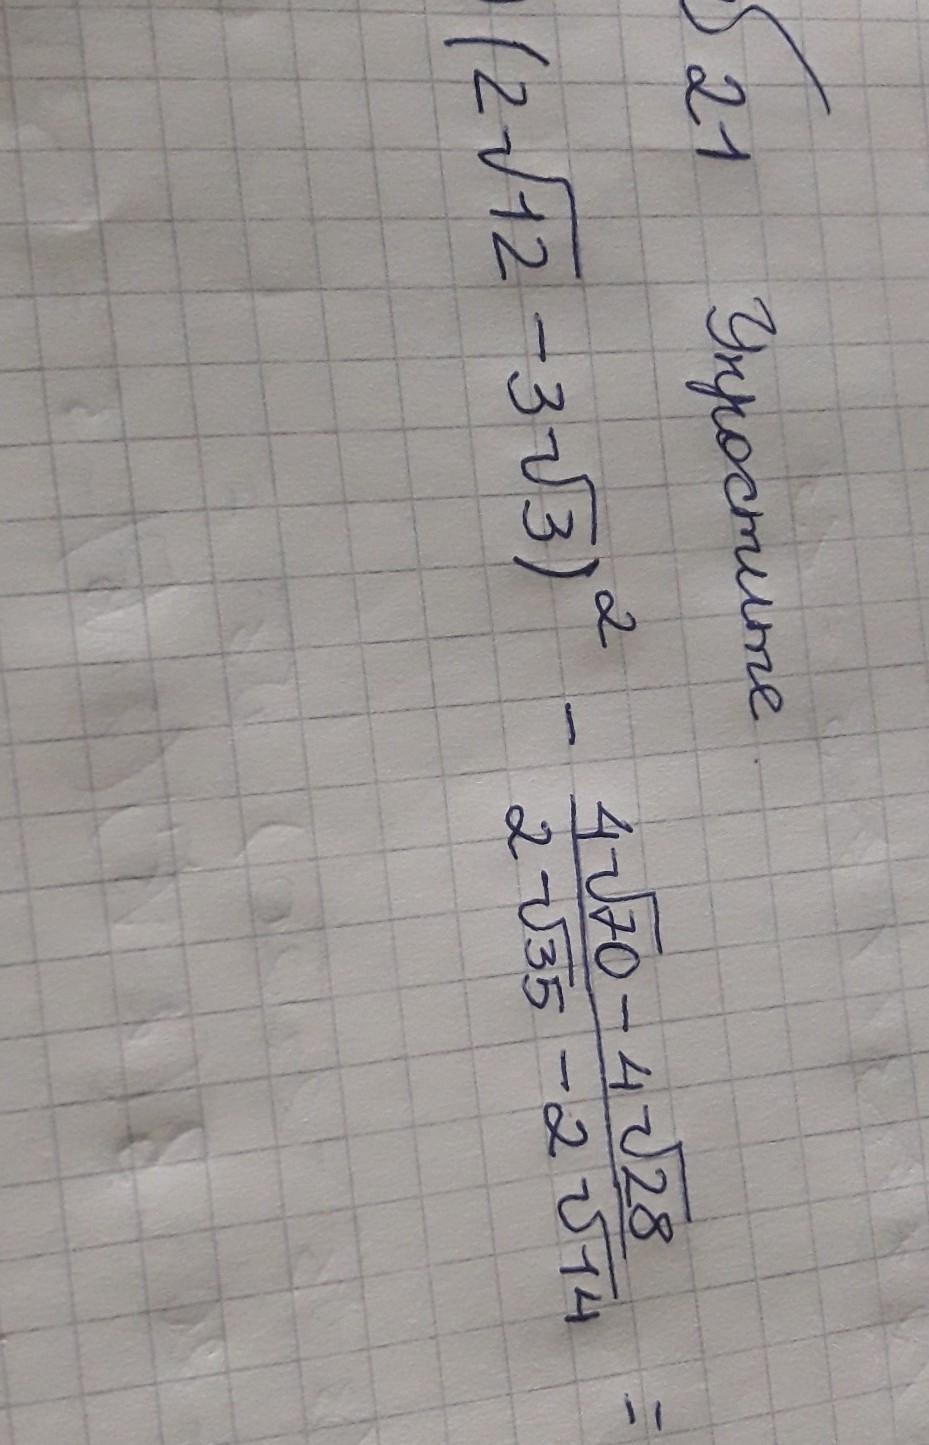 21 Упростите
(2√12 - 3√3)² - (4√70 - 4√28)/(2√35 - 2√14) =